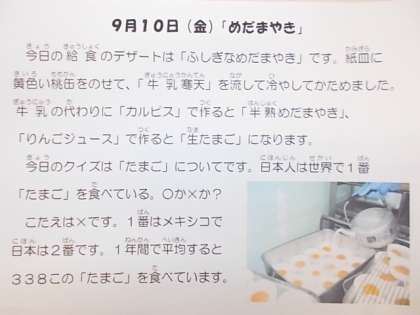 9月10日（金）「めだまやき」
今日の給食のデザートは「ふしぎなめだまやき」です。紙皿に
黄色い桃缶をのせて、「牛乳寒天」を流して冷やしてかためました。
牛乳の代わりに「カルピス」で作ると「半熟めだまやき」、
「りんごジュース」で作ると「生たまご」になります。
今日のクイズは「たまご」についてです。日本人は世界で1番
「たまご」を食べている。〇か×か？
こたえは×です。1番はメキシコで
日本は2番です。1年間で平均すると
338この「たまご」を食べています。